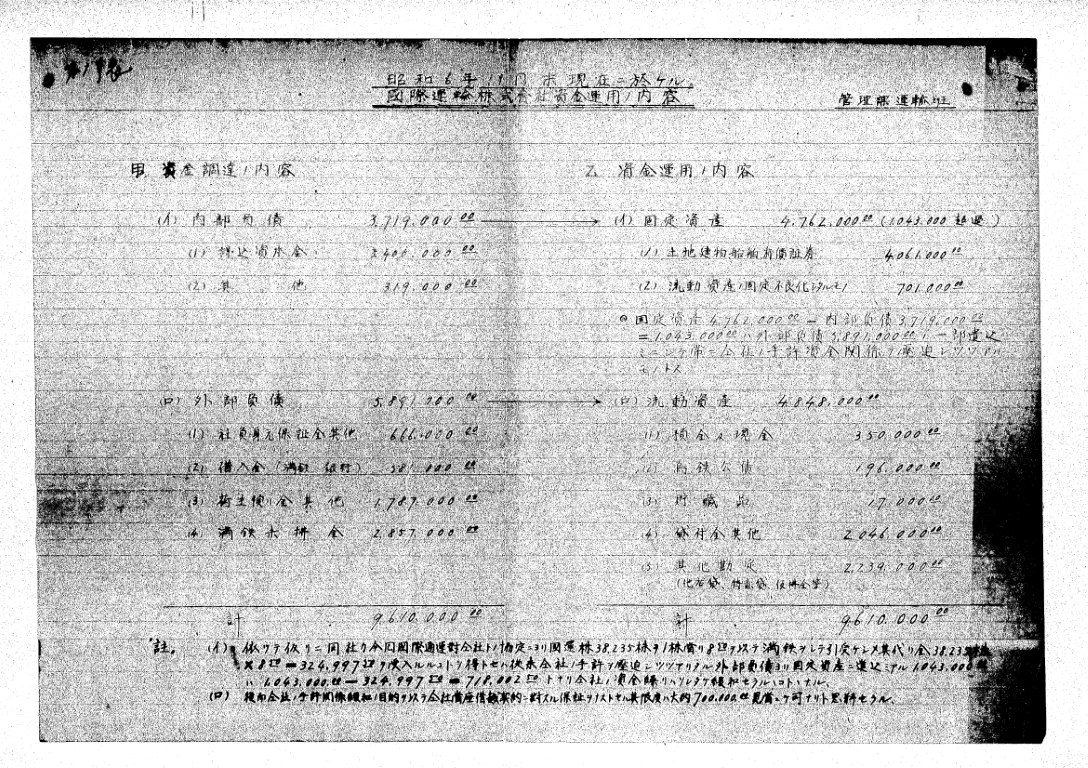 第19表
昭和6年11月末現在ニ於ケル
國際運輸株式会社資金運用ノ内容
管理係運輸班
甲 資金調達ノ内容
(イ) 内部負債 3,719,000.00
(1) 拂込資本金 3,400,000.00
(2) 其他 319,000.00
(ロ) 外部負債 5,891,000.00
(1) 社員身元保証金其他 666,000.00
(2) 借入金(満鉄 銀行) 581,000.00
(3) 荷主預り金其他 1,787,000.00
(4) 満鉄未拂金 2,857,000.00
計 9,610,000.00
乙 資金運用ノ内容
(イ) 固定資産 4,762,000.00 (1,043,000 超過)
(1) 土地建物船舶有價証券 4,061,000.00
(2) 流動資産ノ固定不良化シタルモノ 701,000.00
◎ 固定資産 4,762,000.00 − 内部負債 3,719,000.00
= 1,043,000.00 ハ外部負債 5,891,000.00 ノ一部喰込
ミニシテ常ニ会社ノ手許資金関係ヲ壓迫シツツアル
モノトス
(ロ) 流動資産 4,848,000.00
(1) 預金及現金 350,000.00
(2) 満鉄公債 196,000.00
(3) 貯蔵品 17,000.00
(4) 貸付金其他 2,046,000.00
(5) 其他勘定 2,239,000.00
計 9,610,000.00
註.
(イ) 依リテ仮リニ同社ガ今回國際通運對会社トノ協定ニヨリ国運株 38,235株ヲ1株当リ8円ヲ以テ満鉄ヲシテ引受ケシメ其代リ金 38,235株
× 8円 = 324,997円ヲ受入ルルコトヲ得トセバ従来会社ノ手許ヲ壓迫シツツアリタル外部負債ヨリ固定資産ニ喰込ミタル 1,043,000.00
ハ 1,043,000.00 − 324,997円 = 718,002円トナリ会社ノ資金繰リハソレダケ緩和セラルルコトトナル.
(ロ) 後向会社ノ手許関係緩和ノ目的ヲ以テ会社當座借越契約ニ對スル保証ヲ以トスル其限度ハ大約 700,000.00 見當ニテ可ナリト思料セラル.